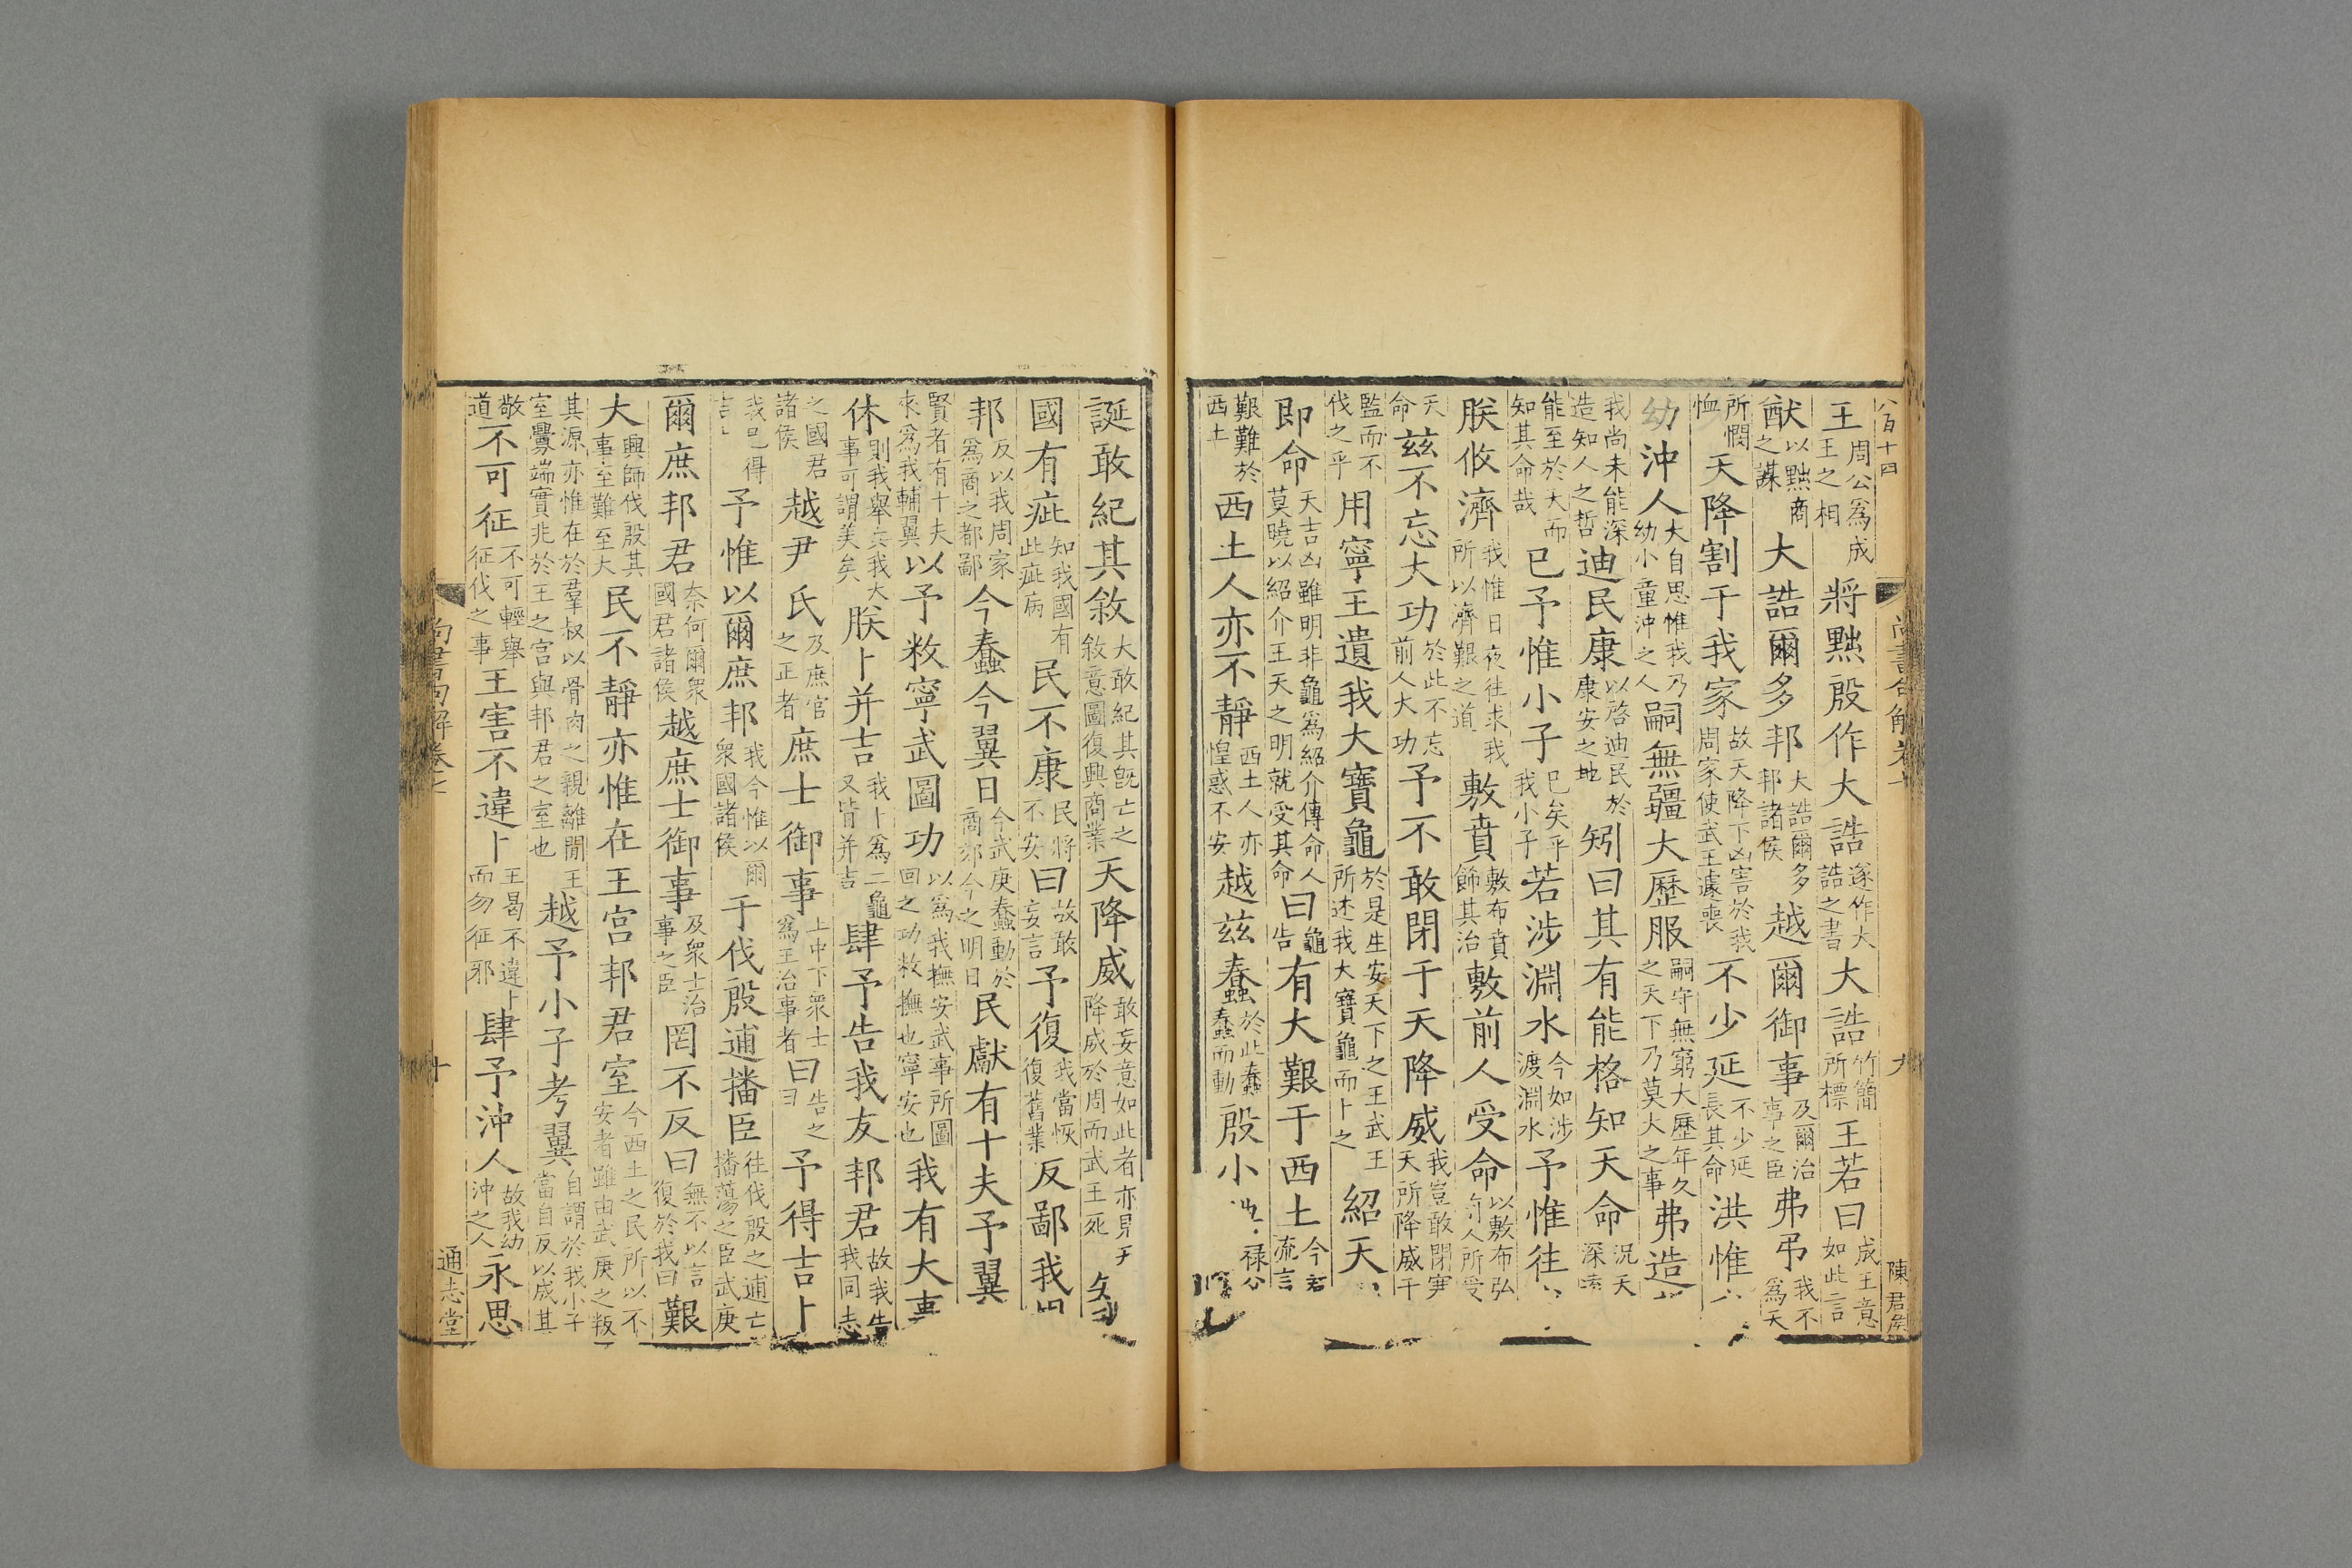 八百十四 尚書句解卷七 九 陳君侯
王周公爲成王之相將黜殷作大誥遂作大誥之書大誥竹簡所標王若曰成王意如此言
猷以黜商之謀大誥爾多邦大誥爾多邦諸侯越爾御事及爾治事之臣弗弔我不爲天
所憫恤天降割于我家故天降下凶害於我周家使武王遽喪不少延不少延長其命洪惟
幼沖人大自思惟我乃幼小童沖之人嗣無疆大歷服嗣守無窮大歷年久之天下乃莫大之事弗造
我尚未能深造知人之哲迪民康以啓迪民於康安之地矧曰其有能格知天命況天深
能至於大而知其命哉已予惟小子已矣乎我小子若涉淵水今如涉渡淵水予惟往
朕攸濟我惟日夜往求我所以濟艱之道敷賁敷布賁飾其治敷前人受命以敷布弘前人所受
天命茲不忘大功於此不忘前人大功予不敢閉于天降威我豈敢閉天所降威于
監而不伐之乎用寧王遺我大寶龜於是生安天下之王武王所述我大寶龜而卜之紹天
即命天吉凶雖明非龜爲紹介傳命人莫曉以紹介王天之明就受其命曰龜告有大艱于西土今若流言
艱難於西土西土人亦不靜西土人亦惶惑不安越茲蠢於此蠢蠢而動殷小祿
誕敢紀其敘大敢紀其旣亡之敘意圖復興商業天降威敢妄意如此者亦見天降威於周而武王死
國有疵知我國有此疵病民不康民將不安曰故敢妄言予復我當恢復舊業反鄙我
邦反以我周家爲商之都鄙今蠢今翼日今武庚蠢動於商郊今之明日民獻有十夫予翼
賢者有十夫來爲我輔翼以予敉寧武圖功以爲我撫安武事所圖回之功敉撫也寧安也我有大事
休則我舉兵我大事可謂美矣朕卜并吉我卜爲二龜又皆并吉肆予告我友邦君故我告我同志
之國君諸侯越尹氏及庶官之正者庶士御事上中下衆士爲王治事者曰告之曰予得吉卜
我已得吉予惟以爾庶邦我今惟以爾衆國諸侯于伐殷逋播臣往伐殷之逋亡播蕩之臣武庚
爾庶邦君奈何爾衆國君諸侯越庶士御事及衆士治事之臣罔不反曰無不以言復於我曰艱
大興師伐殷其事至難至大民不靜亦惟在王宮邦君室今西土之民所以不安者雖由武庚之叛
其源亦惟在於羣叔以骨肉之親離間王室釁端實兆於王之宮與邦君之室也越予小子考翼自謂於我小子當自反以成其
敬道不可征不可輕舉征伐之事王害不違卜王曷不違卜而勿征邪肆予沖人故我幼沖之人永思
尚書句解卷七 十 通志堂